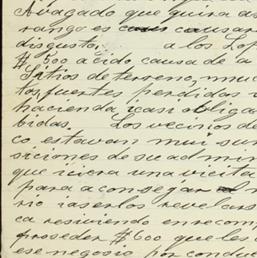 Avogado que quira as
rango es causar
disgusto a los Lop
$600 a cido causa de a
Sitios de terreno, muc
tos, fuertes perdidas
hacienda icasi obliga
bidas. Los vecinos de
co estavan muy sum
siciones de su admin
que iciera una vicita
para aconsejar al m
rio iaserlos revelars
ca resiviendo en recomp
proseder $600 que les
ese negosio por conduc